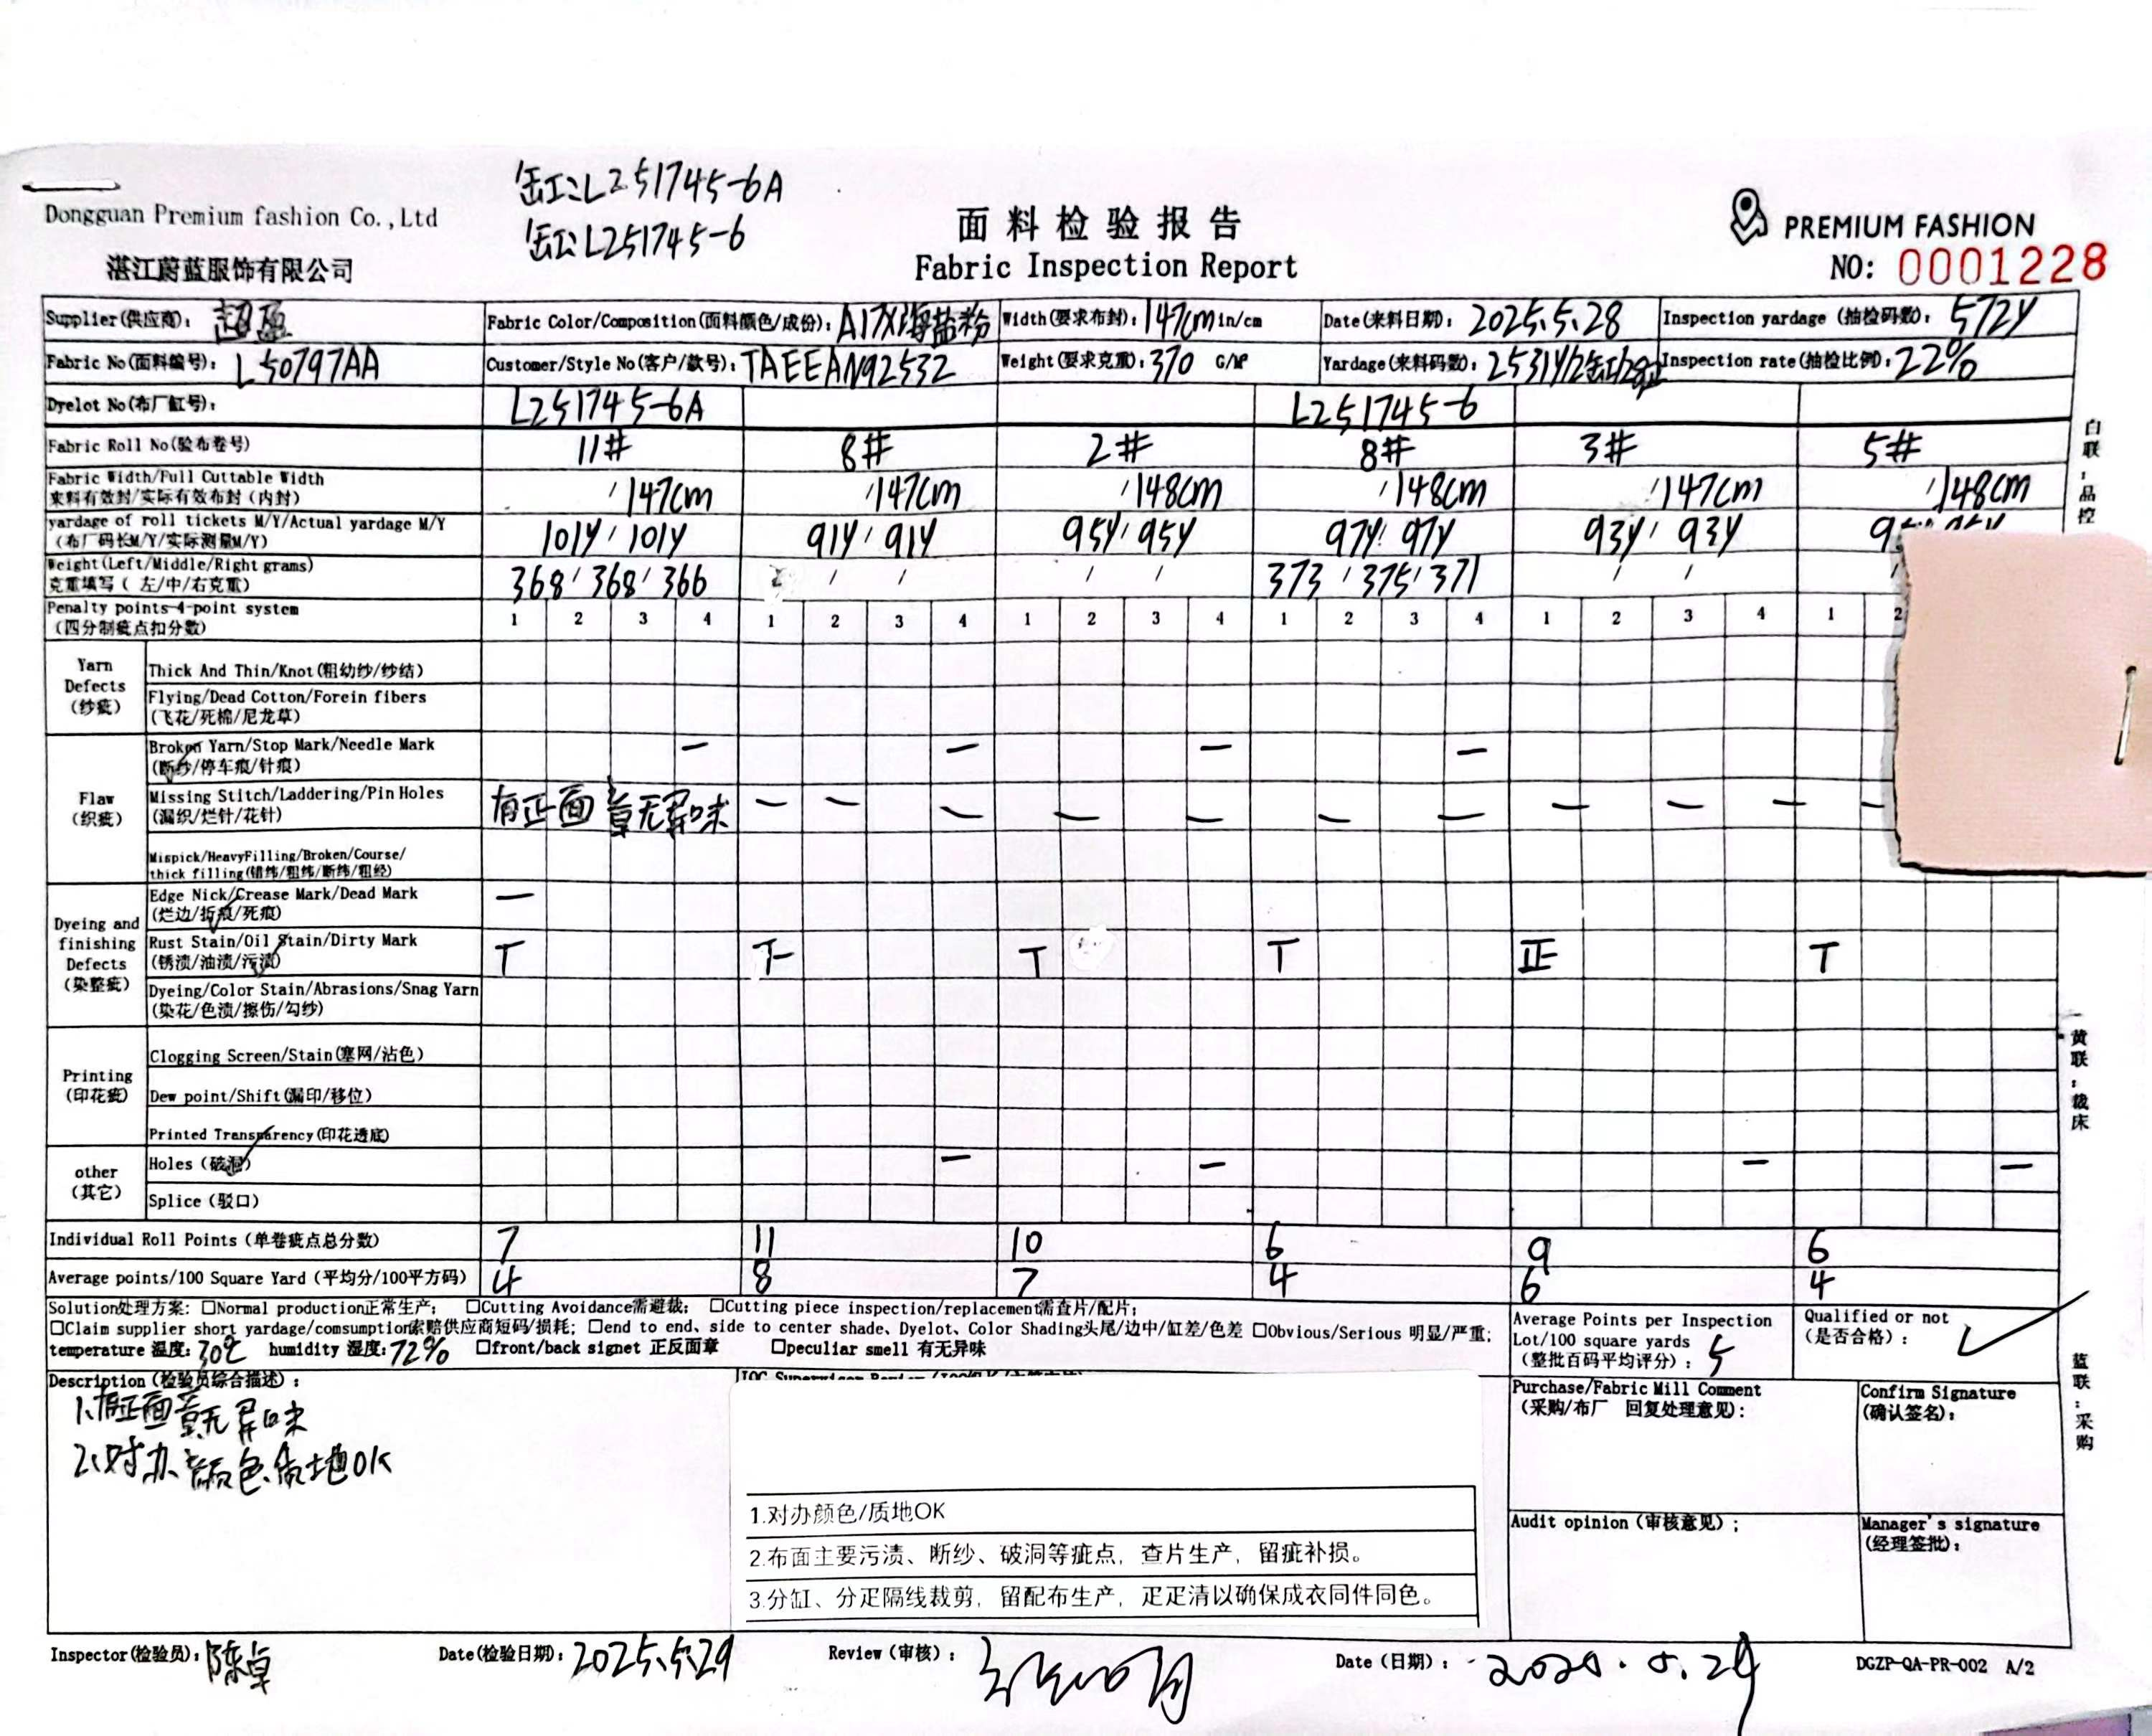 缸:L251745-6A
缸:L251745-6
Dongguan Premium fashion Co.,Ltd
湛江蔚蓝服饰有限公司
面料检验报告
Fabric Inspection Report
PREMIUM FASHION
NO: 0001228
Supplier(供应商): 超盈 Fabric Color/Composition(面料颜色/成份): A17X海盐粉 Width(要求布封): 147cm in/cm Date(来料日期): 2025.5.28 Inspection yardage (抽检码数): 572Y
Fabric No(面料编号): L50797AA Customer/Style No(客户/款号): TAEEAN92532 Weight(要求克重): 370 G/M² Yardage(来料码数): 2531Y/2缸/28疋 Inspection rate(抽检比例): 22%
Dyelot No(布厂缸号): L251745-6A L251745-6
Fabric Roll No(验布卷号) 11# 8# 2# 8# 3# 5#
Fabric Width/Full Cuttable Width
来料有效封/实际有效布封(内封) / 147cm / 147cm / 148cm / 148cm / 147cm / 148cm
yardage of roll tickets M/Y/Actual yardage M/Y
(布厂码长M/Y/实际测量M/Y) 101Y / 101Y 91Y / 91Y 95Y / 95Y 97Y / 97Y 93Y / 93Y
Weight(Left/Middle/Right grams)
克重填写(左/中/右克重) 368 / 368 / 366 / / / / 373 / 375 / 371 / / /
Penalty points-4-point system
(四分制疵点扣分数) 1 2 3 4 1 2 3 4 1 2 3 4 1 2 3 4 1 2 3 4 1 2
Yarn Defects (纱疵)
Thick And Thin/Knot(粗幼纱/纱结)
Flying/Dead Cotton/Forein fibers
(飞花/死棉/尼龙草)
Flaw (织疵)
Broken Yarn/Stop Mark/Needle Mark
(断纱/停车痕/针痕) 一 一 一 一
Missing Stitch/Laddering/Pin Holes
(漏织/烂针/花针) 有正面章无异味 一 一 一 一 一 一 一 一 一 一 一
Mispick/HeavyFilling/Broken/Course/
thick filling(错纬/粗纬/断纬/粗经)
Dyeing and finishing Defects (染整疵)
Edge Nick/Crease Mark/Dead Mark
(烂边/折痕/死痕) 一
Rust Stain/Oil Stain/Dirty Mark
(锈渍/油渍/污渍) T 下 T T 正 T
Dyeing/Color Stain/Abrasions/Snag Yarn
(染花/色渍/擦伤/勾纱)
Printing (印花疵)
Clogging Screen/Stain(塞网/沾色)
Dew point/Shift(漏印/移位)
Printed Transparency(印花透底)
other (其它)
Holes (破洞) 一 一 一 一
Splice (驳口)
Individual Roll Points (单卷疵点总分数) 7 11 10 6 9 6
Average points/100 Square Yard (平均分/100平方码) 4 8 7 4 6 4
Solution处理方案: □Normal production正常生产; □Cutting Avoidance需避裁; □Cutting piece inspection/replacement需查片/配片;
□Claim supplier short yardage/comsumption索赔供应商短码/损耗; □end to end、side to center shade、Dyelot、Color Shading头尾/边中/缸差/色差 □Obvious/Serious 明显/严重;
temperature 温度: 30℃ humidity 湿度: 72% □front/back signet 正反面章 □peculiar smell 有无异味
Average Points per Inspection
Lot/100 square yards
(整批百码平均评分): 5
Qualified or not
(是否合格): ✓
Description (检验员综合描述):
1.有正面章无异味
2.对办颜色、质地OK
1.对办颜色/质地OK
2.布面主要污渍、断纱、破洞等疵点，查片生产，留疵补损。
3.分缸、分疋隔线裁剪，留配布生产，疋疋清以确保成衣同件同色。
Purchase/Fabric Mill Comment
(采购/布厂 回复处理意见):
Confirm Signature
(确认签名):
Audit opinion (审核意见);
Manager's signature
(经理签批):
Inspector(检验员): 陈卓 Date(检验日期): 2025.5.29 Review (审核): Date (日期): 2025.5.29 DGZP-QA-PR-002 A/2
白联:品控
黄联:裁床
蓝联:采购